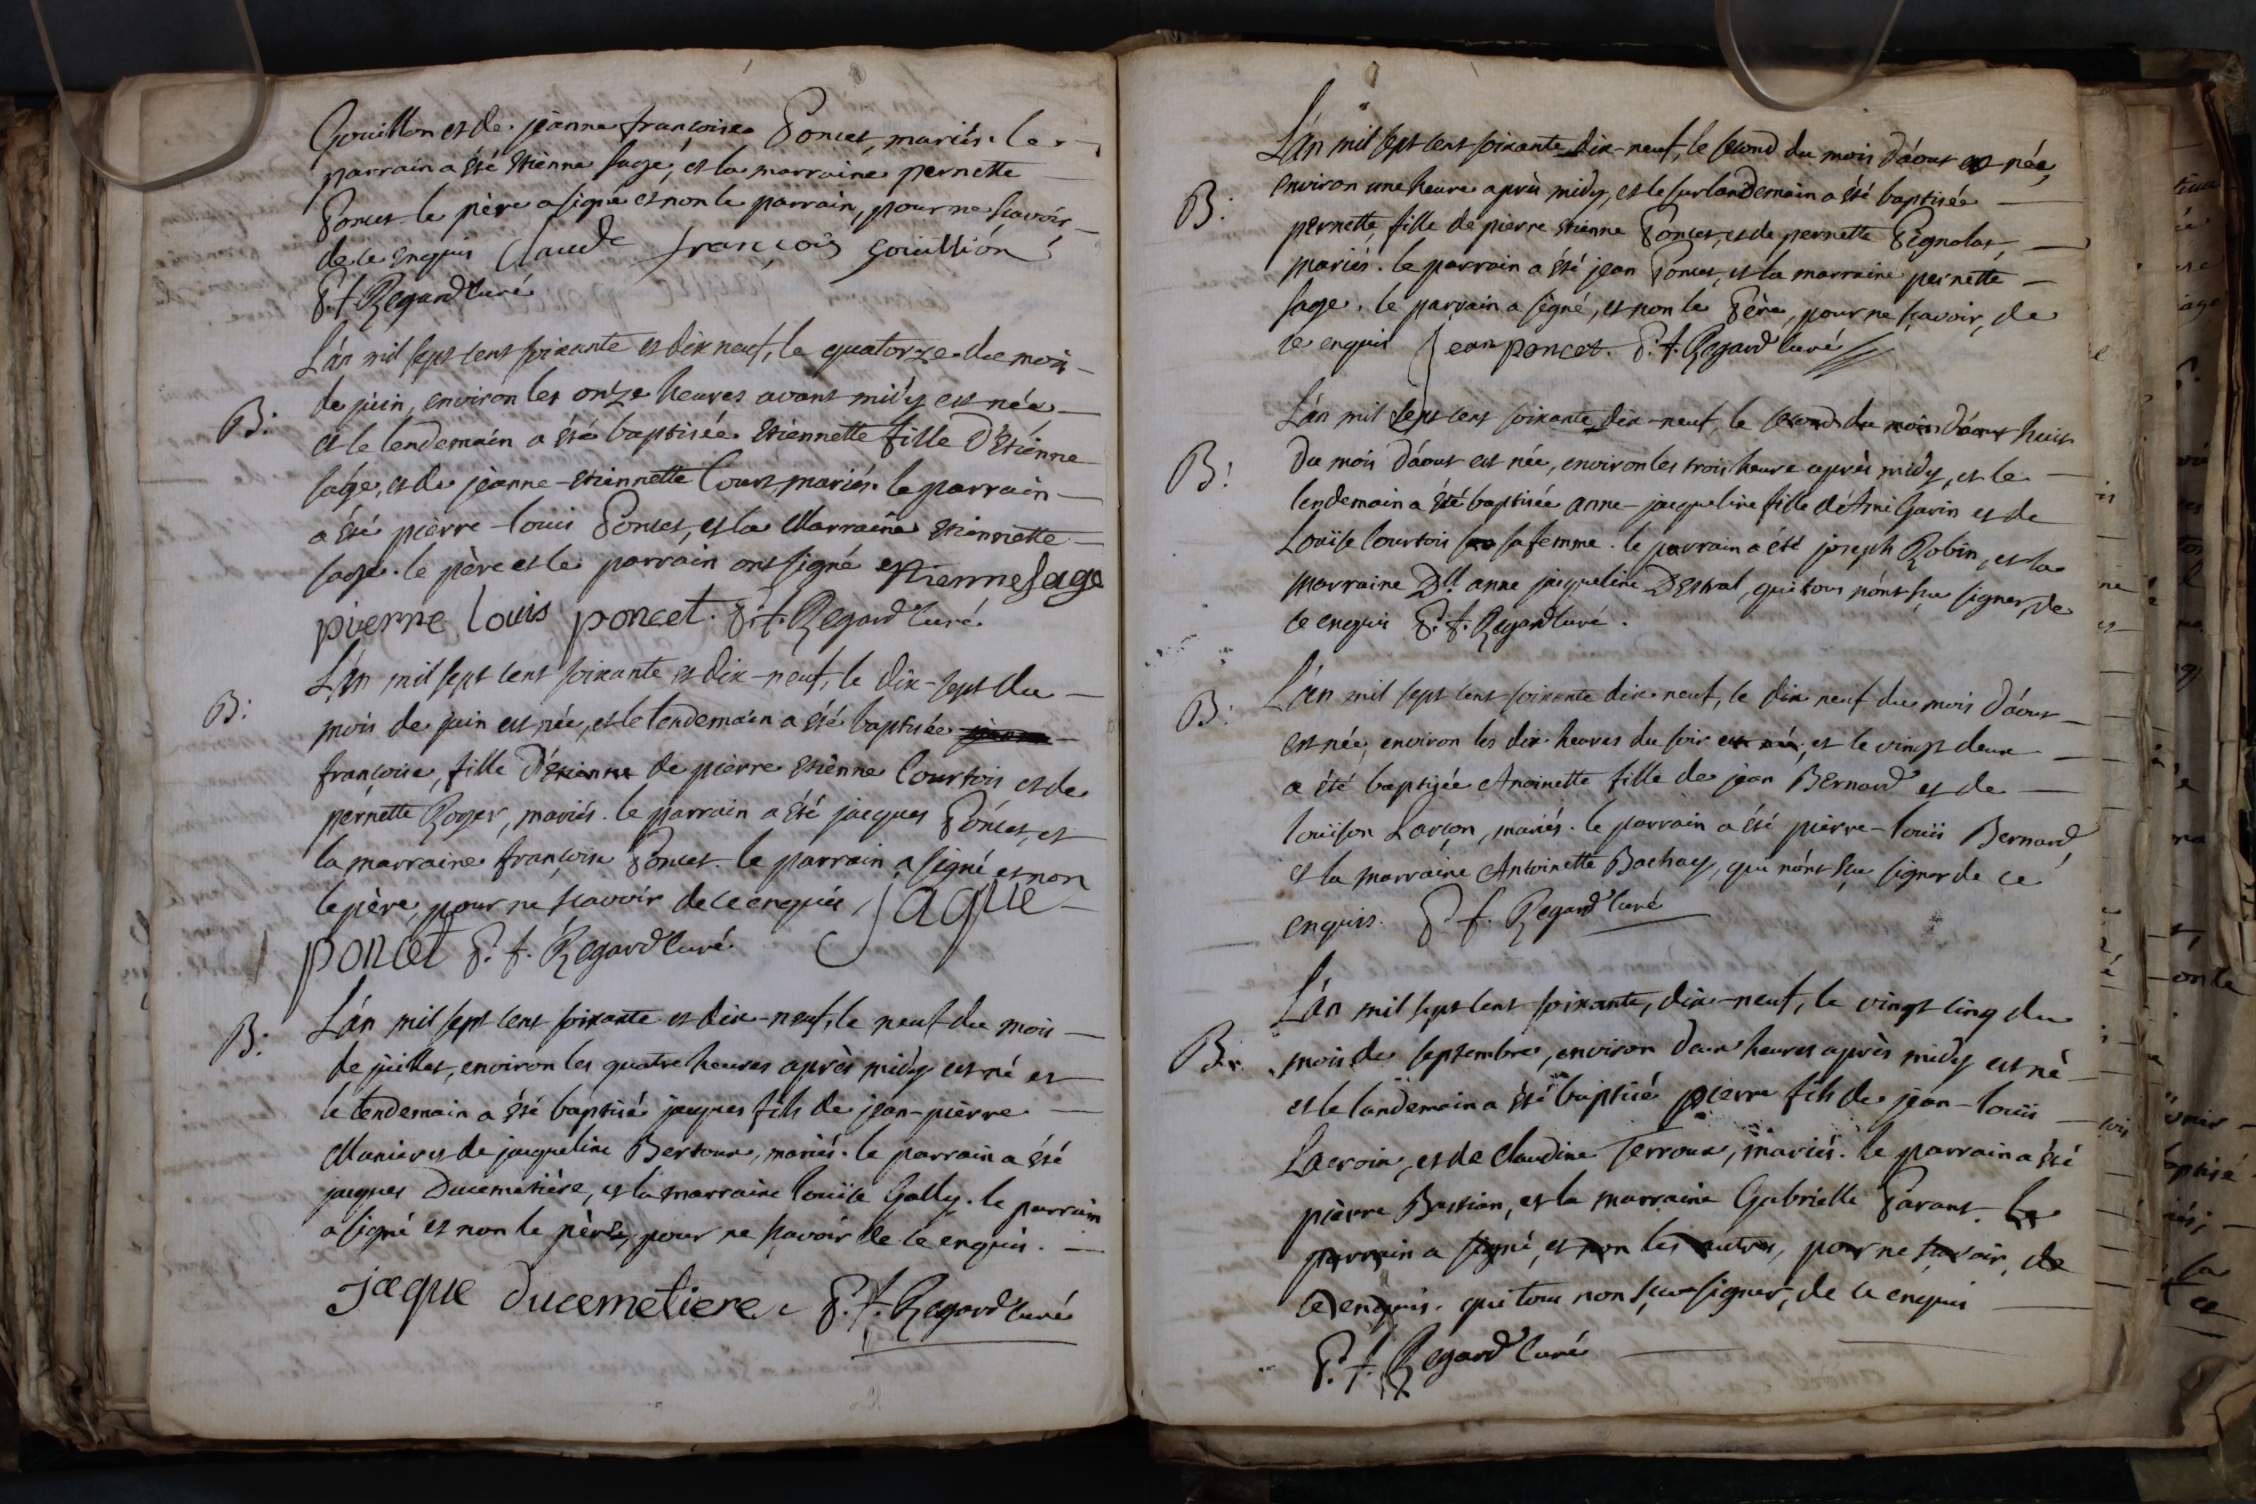 Gouillon et de jeanne françoise Poncet, mariés. le
parrain a été étiènne sage, et la marraine pernette
Poncet. le père a signé et non le parrain, pour ne sçavoir,
de ce enquis Claude françois gouillion
P. f. Regard curé
L'an mil sept cent soixante et dix neuf, le quatorze du mois
B: de juin, environ les onze heures avant midy est née
et le lendemain a été baptisée étiennette fille d'étienne
sage, et de jeanne-étiennette Court, mariés. le parrain
a été pièrre-louis Poncet, et la Marraine étiennette
sage. le père et le parrain ont signé estienne sage
pierre louis poncet. P. f. Regard curé
B: L'an mil sept cent soixante et dix-neuf, le dix-sept du
mois de juin est née, et le lendemain a été baptisée
françoise, fille d'étienne de pièrre étiènne Courtois et de
pernette Roger, mariés. le parrain a été jacques Poncet, et
la marraine françoise Poncet. le parrain a signé et non
le père, pour ne sçavoir de ce enquis jaque
poncet P. f. Regard curé
B: L'an mil sept cent soixante et dix-neuf, le neuf du mois
de juillet, environ les quatre heures après midy est né et
le lendemain a été baptisé jacques fils de jean-pièrre
et de jacqueline Bertoux, mariés. le parrain a été
jacques Ducimetière, et la marraine louïse Gally. le parrain
a signé et non le père, pour ne sçavoir de ce enquis.
jaque ducemetiere P. f. Regard curé
L'an mil sept cent soixante dix-neuf, le second du mois d'aout est née,
B: environ une heure après midy, et le surlandemain a été baptisée
pernette, fille de pierre étienne Poncet, et de pernette Pignolet,
mariés. le parrain a été jean Poncet, et la marraine pernette
sage. le parrain a signé, et non le Père, pour ne sçavoir, de
ce enquis jean poncet. P. f. Regard curé
L'an mil sept cent soixante dix-neuf, le second du mois d'aout huit
B: du mois d'aout est née, environ les trois heure après midy, et le
lendemain a été baptisée anne-jacqueline fille d'Ami Gavin et de
Louïse Courtois sa femme. le parrain a été joseph Robin, et la
marraine Dlle anne jacqueline Destral, qui tous n'ont sçu signer, de
ce enquis P. f. Regard curé.
B: L'an mil sept cent soixante dix neuf, le dix neuf du mois d'aout
est née, environ les dix heures du soir est née, et le vingt deux
a été baptisée Antoinette fille de jean Bernard et de
louïson Larçon, mariés. le parrain a été pièrre-louïs Bernard,
et la marraine Antoinette Bachay, qui n'ont sçu signer de ce
enquis. P. f. Regard curé
L'an mil sept cent soixante, dix-neuf, le vingt cinq du
B: mois de septembre, environ deux heures après midy est né
et le landemain a été baptisé pierre fils de jean-louïs
Lacroix, et de Claudine Terroux, mariés. le parrain a été
pièrre Bastian, et la marraine Gabrielle Parant. Le
parrain a signé, et non les autres, pour ne sçavoir, de
ce enquis. qui tous non sçu signer, de ce enquis
P. f. Regard curé